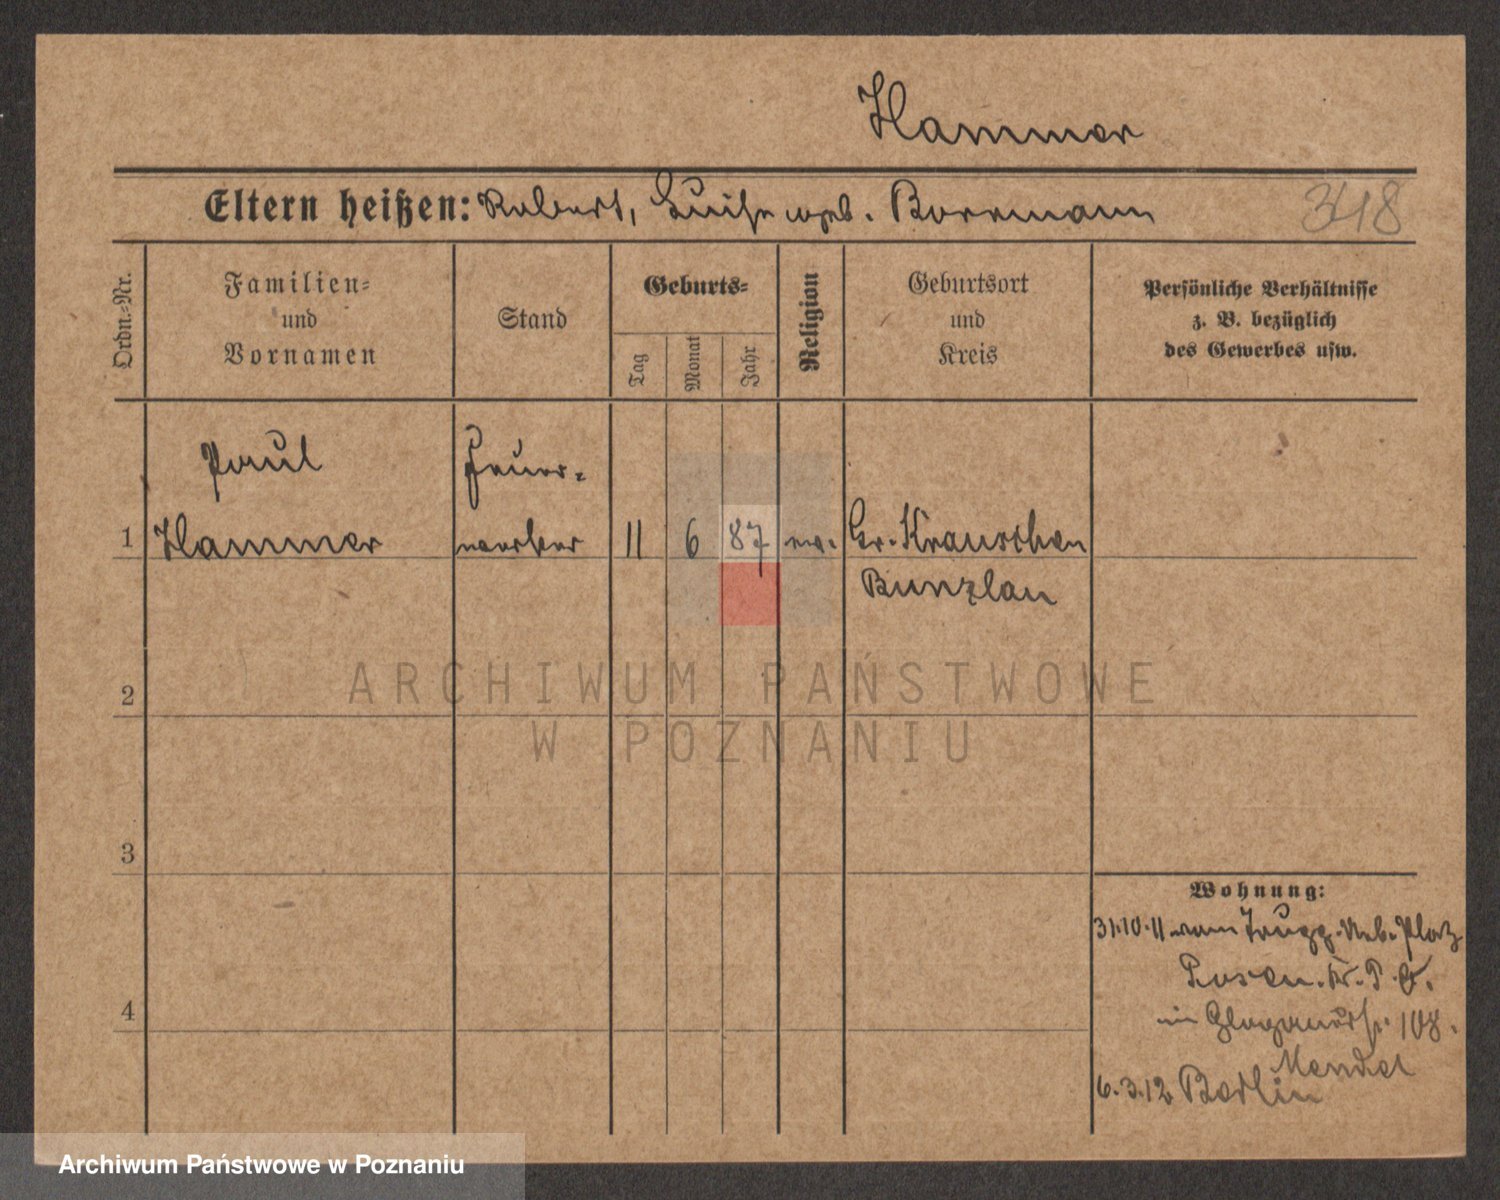 Hammer
Eltern heißen: Robert, Luise geb. Borrmann
348
Ordn.-Nr.
Familien-
und
Vornamen
Stand
Geburts-
Tag
Monat
Jahr
Religion
Geburtsort
und
Kreis
Persönliche Verhältnisse
z. B. bezüglich
des Gewerbes usw.
Paul
Feuer-
1 Hammer werker 11 6 87 ev. Gr. Krauschen
Bunzlau
ARCHIWUM PAŃSTWOWE
W POZNANIU
2
3
4
Wohnung:
31.10.11 vom Trupp. Üeb. Platz
Posen
Glogauerstr. 108.
Mendel
6.3.12 Berlin
Archiwum Państwowe w Poznaniu